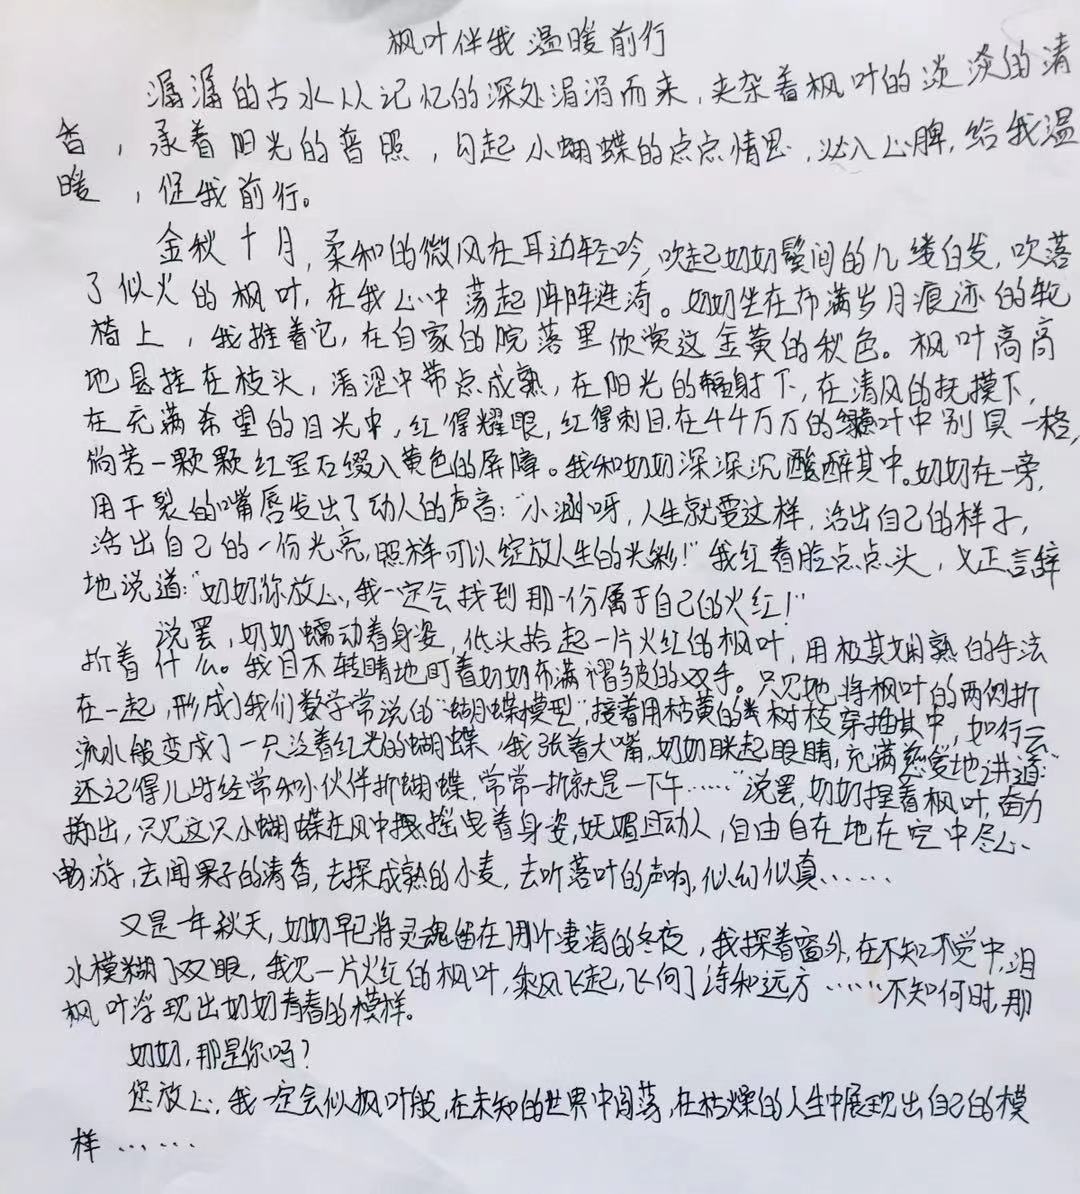 枫叶伴我温暖前行
潺潺的古水从记忆的深处涓涓而来，夹杂着枫叶的淡淡的清
香，承着阳光的普照，勾起小蝴蝶的点点情思，沁入心脾，给我温
暖，促我前行。
金秋十月，柔和的微风在耳边轻吟，吹起奶奶鬓间的几缕白发，吹落
了似火的枫叶，在我心中荡起阵阵涟漪。奶奶坐在布满岁月痕迹的轮
椅上，我推着它，在自家的院落里欣赏这金黄的秋色。枫叶高高
地悬挂在枝头，清涩中带点成熟，在阳光的辐射下，在清风的抚摸下，
在充满希望的目光中，红得耀眼，红得刺目，在千千万万的绿叶中别具一格，
倘若一颗颗红宝石缀入黄色的屏障。我和奶奶深深沉醉其中。奶奶在一旁，
用干裂的嘴唇发出了动人的声音：“小涵呀，人生就要这样，活出自己的样子，
活出自己的一份光亮，照样可以绽放人生的光彩！”我红着脸点点头，义正言辞
地说道：“奶奶你放心，我一定会找到那一份属于自己的火红！”
说罢，奶奶蠕动着身姿，低头拾起一片火红的枫叶，用极其娴熟的手法
折着什么。我目不转睛地盯着奶奶布满褶皱的双手。只见她将枫叶的两侧折
在一起，形成了我们数学常说的“蝴蝶模型”，接着用枯黄的树枝穿插其中，如行云
流水般变成了一只泛着红光的蝴蝶，我张着大嘴，奶奶眯起眼睛，充满慈爱地讲道：“
还记得儿时经常和小伙伴折蝴蝶，常常一折就是一下午……”说罢，奶奶捏着枫叶，奋力
掷出，只见这只小蝴蝶在风中摇曳着身姿，妩媚且动人，自由自在地在空中尽心
畅游，去闻果子的清香，去探成熟的小麦，去听落叶的声响，似幻似真……
又是一年秋天，奶奶早已将灵魂留在那个凄清的冬夜，我探着窗外，在不知不觉中，泪
水模糊了双眼，我见一片火红的枫叶，乘风飞起，飞向了诗和远方……不知何时，那
枫叶浮现出奶奶青春的模样。
奶奶，那是你吗？
您放心，我一定会似枫叶般，在未知的世界中闯荡，在枯燥的人生中展现出自己的模
样……